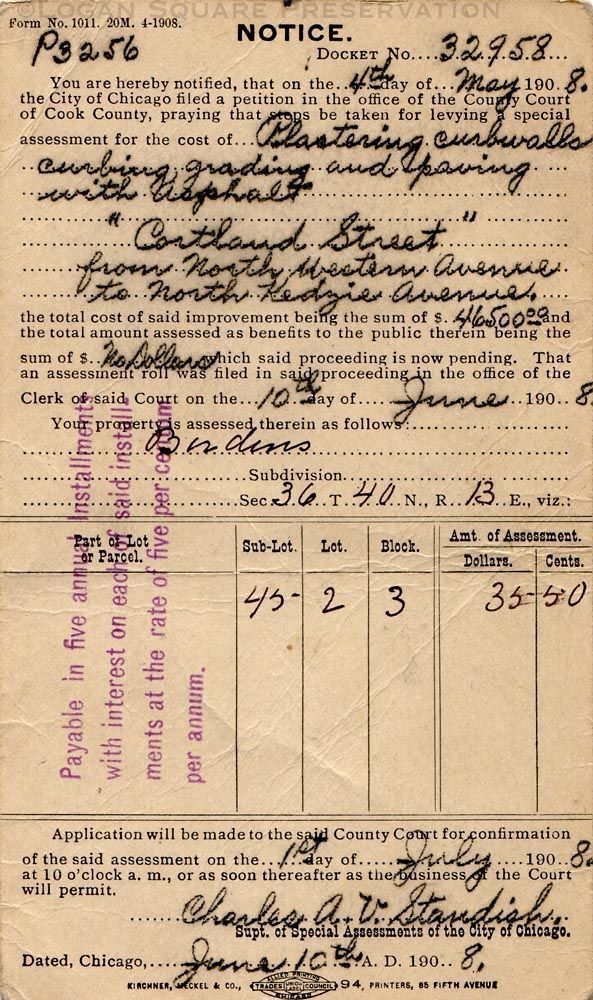 ©LOGAN SQUARE PRESERVATION
Form No. 1011. 20M. 4-1908.
NOTICE.
P3256
DOCKET No....32958...
You are hereby notified, that on the..4th day of...May 190 8.
the City of Chicago filed a petition in the office of the County Court
of Cook County, praying that steps be taken for levying a special
assessment for the cost of...Plastering curbwalls
curbing, grading and paving
with asphalt
"Cortland Street"
from North Western Avenue
to North Kedzie Avenue.
the total cost of said improvement being the sum of $. 46500 00 and
the total amount assessed as benefits to the public therein being the
sum of $..No Dollars which said proceeding is now pending. That
an assessment roll was filed in said proceeding in the office of the
Clerk of said Court on the...10th day of....June..190..8.
Your property is assessed therein as follows:
Bordens
Subdivision
Sec 36..T. 40..N., R..13..E., viz.:
Part of Lot or Parcel. Sub-Lot. Lot. Block. Amt. of Assessment.
Dollars. Cents.
45 2 3 35 50
Payable in five annual Installments
with interest on each of said install-
ments at the rate of five per centum
per annum.
Application will be made to the said County Court for confirmation
of the said assessment on the...1st day of....July....190..8.
at 10 o'clock a. m., or as soon thereafter as the business of the Court
will permit.
Charles A. V. Standish.
Supt. of Special Assessments of the City of Chicago.
Dated, Chicago,....June 10th A. D. 190..8.
KIRCHNER, MECKEL & CO., ALLIED PRINTING TRADES UNION LABEL COUNCIL CHICAGO 94, PRINTERS, 85 FIFTH AVENUE